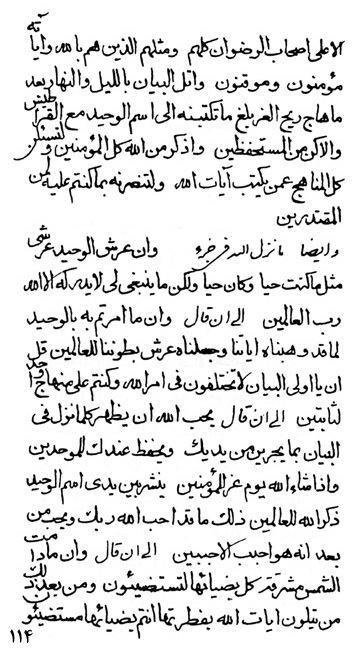 الاعلى اصحاب الرضوان كلهم ومثلهم الذين هم بالله وآياته
مؤمنون وموقنون واتل البيان بالليل والنهار بعد
ماهاج ريح الفر بلغ ما تكتبنه الى اسم الوحيد مع القرطيس
والاكرمن المستحفظين واذكر من الله كل المؤمنين ولتسئلن
كل المناهج عمن يكتب آيات الله ولتنصرنه بما كنتم عليه لمن
المقتدرين
وايضا ما نزل الله فى وان عرش الوحيد عرشى
مثل ما كنت حيا وكان حيا ولكن ما ينبغى لى لا يدركه الا الله
رب العالمين الى ان قال وان ما امرتم به بالوحيد
لما قد وهبناه اياتنا وجعلناه عرش بطوننا للعالمين قل
ان يا اولى البيان لا تختلفون فى امر الله وكنتم على منهاج
لثابتين الى ان قال يحب الله ان يظهر كلما نزل فى
البيان بما يجرين من يديك ويحفظ عندك للموحدين
واذا شاء الله يوم عز للمؤمنين ينشر بين يدى اسم الوحيد
ذكر الله للعالمين ذلك ما قد احب الله ربك ويحب من
بعد انه هو احبب الاحببين الى ان قال وان مادامت
الشمس مشرقة كل بضيائها لتستضيئون ومن بعد ذلك
من يتلون ايات الله بفطرتها انتم بضيائها مستضيئون
١١٤